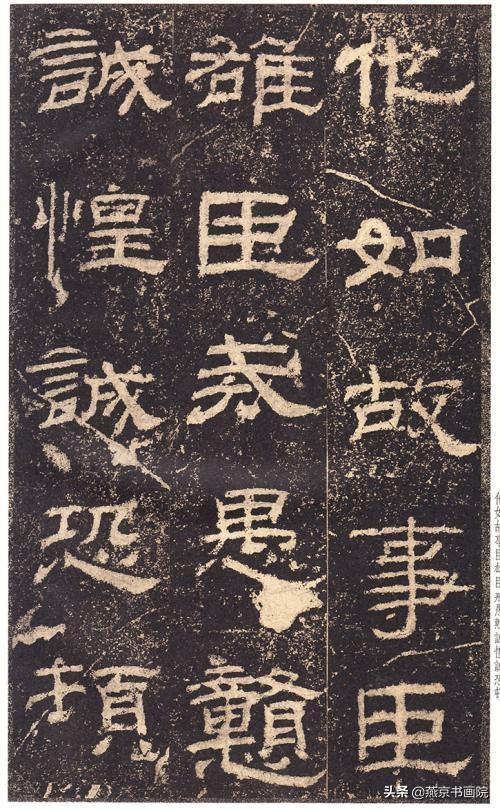 他如故事臣
雄臣戒愚戇
誠惶誠恐頓
他如故事臣雄臣戒愚戇誠惶誠恐頓
头条 @燕京书画院